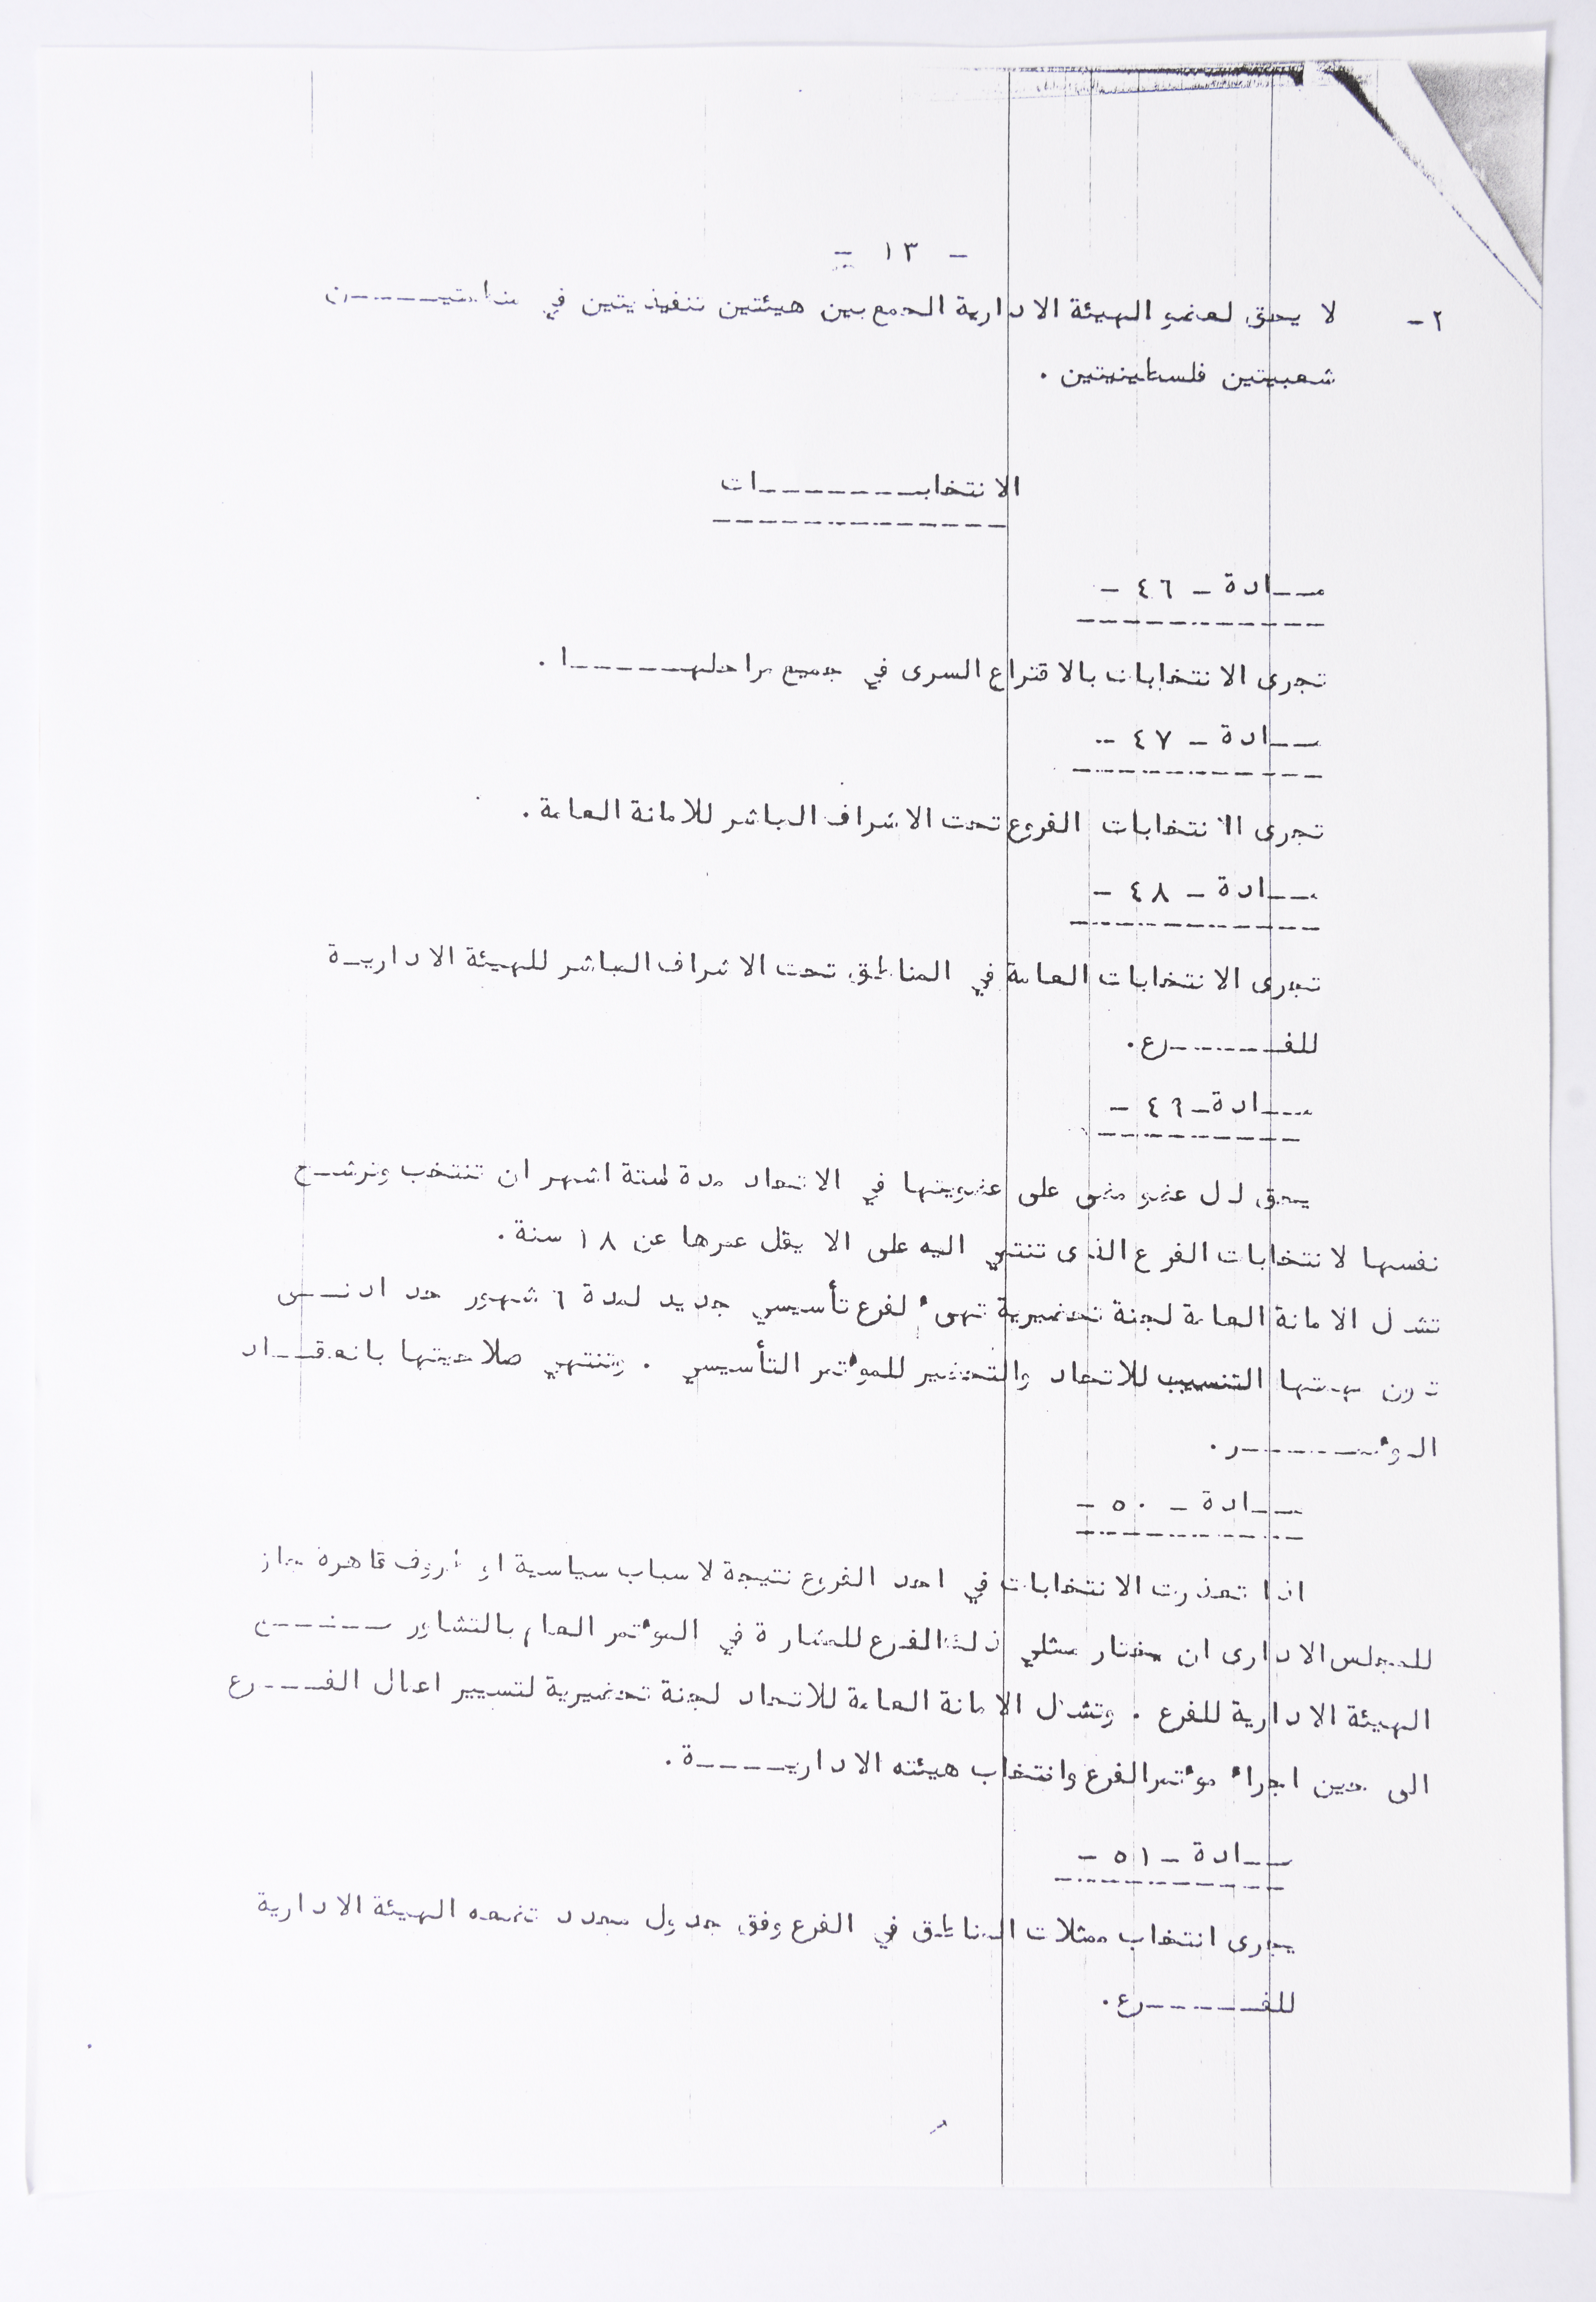 - ١٣ -
٢- لا يحق لعضو الهيئة الادارية الجمع بين هيئتين تنفيذيتين في منظمتيـــــن
شعبيتين فلسطينيتين .
الانتخابـــــــات
مــادة - ٤٦ -
تجرى الانتخابات بالاقتراع السرى في جميع مراحلهــــــا .
مــادة - ٤٧ -
تجرى الانتخابات الفروع تحت الاشراف المباشر للامانة العامة .
مــادة - ٤٨ -
تجرى الانتخابات العامة في المناطق تحت الاشراف المباشر للهيئة الاداريـة
للفــــــرع .
مــادة - ٤٩ -
يحق لكل عضو مضى على عضويتها في الاتحاد مدة ستة اشهر ان تنتخب وترشــح
نفسها لانتخابات الفرع الذى تنتمي اليه على الا يقل عمرها عن ١٨ سنة .
تشكل الامانة العامة لجنة تحضيرية تهىء لفرع تأسيسي جديد لمدة ٦ شهور حد ادنــى
تكون مهمتها التنسيب للاتحاد والتحضير للموءتمر التأسيسي . وتنتهي صلاحيتها بانعقــاد
الموءتمــــــر .
مــادة - ٥٠ -
اذا تعذرت الانتخابات في احد الفروع نتيجة لاسباب سياسية او ظروف قاهرة جاز
للمجلس الادارى ان يختار ممثلي ذلك الفرع للمشاركة في الموءتمر العام بالتشاور
الهيئة الادارية للفرع . وتشكل الامانة العامة للاتحاد لجنة تحضيرية لتسيير اعمال الفــرع
الى حين اجراء موءتمر الفرع وانتخاب هيئته الاداريــــة .
مــادة - ٥١ -
يجرى انتخاب ممثلات المناطق في الفرع وفق جدول محدد تضعه الهيئة الادارية
للفـــــرع .